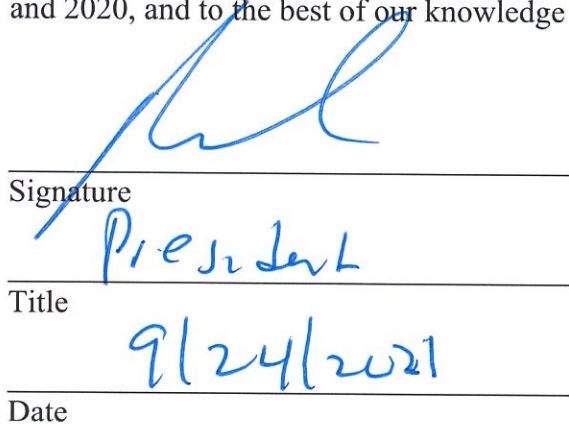 and 2020, and to the best of our knowledge
Signature
President
Title
9/24/2021
Date